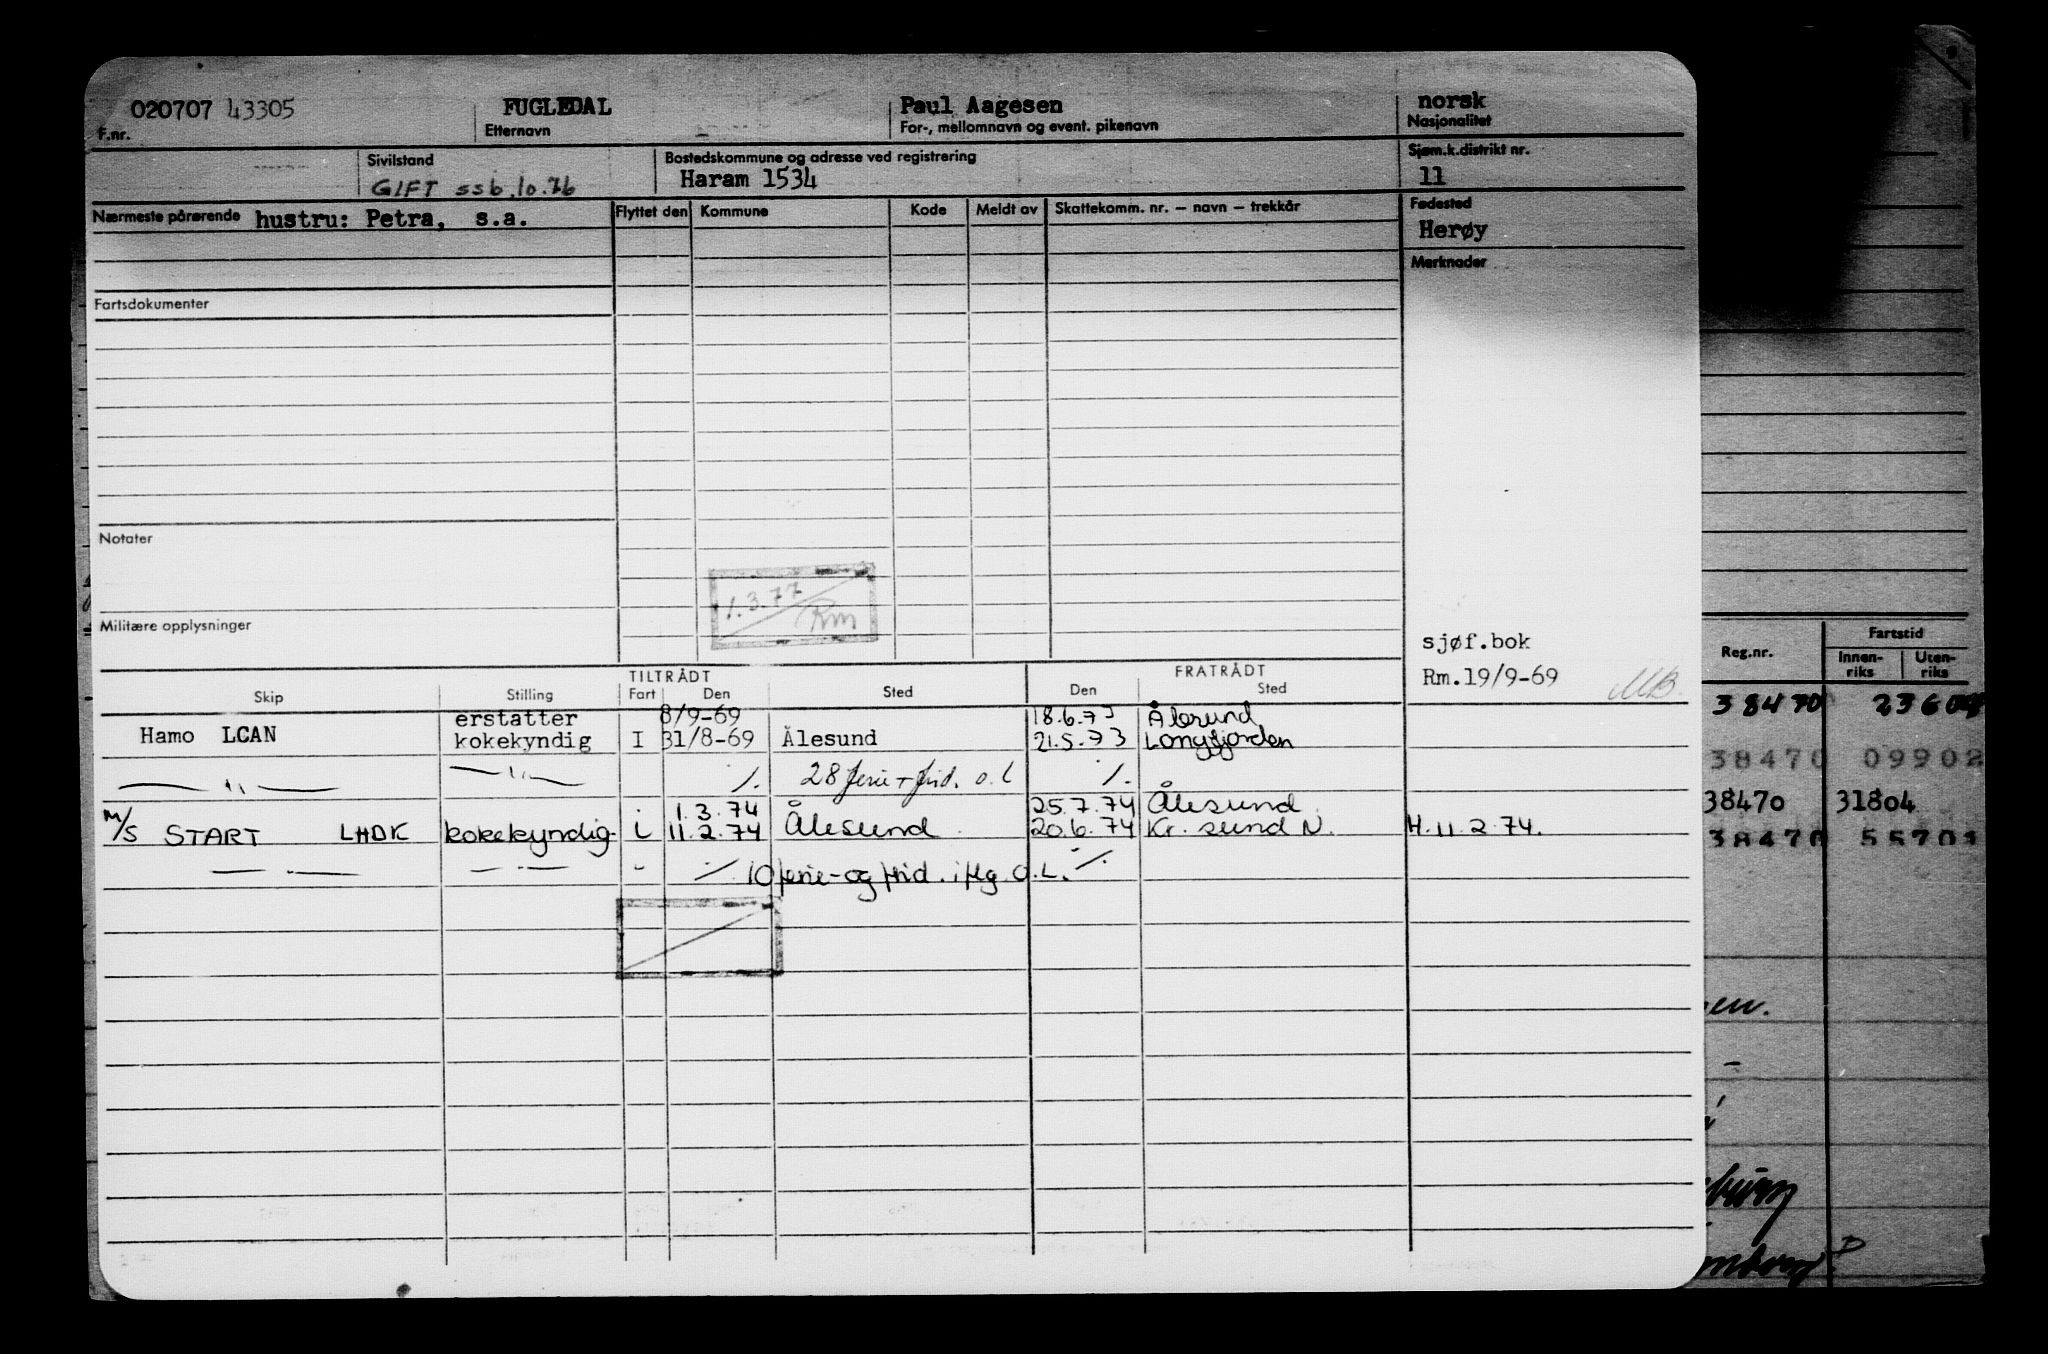 020707 43305 FUGLEDAL Paul Aagesen norsk
F.nr. Etternavn For-, mellomnavn og event. pikenavn Nasjonalitet
Sivilstand Bostedskommune og adresse ved registrering Sjøm.k.distrikt nr.
GIFT ssb.10.76 Haram 1534 11
Nærmeste pårørende hustru: Petra, s.a. Flyttet den Kommune Kode Meldt av Skattekomm. nr. — navn — trekkår Fødested
Herøy
Merknader
Fartsdokumenter
Notater
1.3.77
Rm
Militære opplysninger
sjøf.bok
Rm.19/9-69 MB.
TILTRÅDT FRATRÅDT
Skip Stilling Fart Den Sted Den Sted
erstatter 8/9-69 18.6.73 Ålesund
Hamo LCAN kokekyndig I 31/8-69 Ålesund 21.5.73 Langfjorden
— " — — " — ./. 28 ferie + frid. o.l ./.
1.3.74 25.7.74 Ålesund
M/S START LHDK kokekyndig i 11.2.74 Ålesund 20.6.74 Kr. sund N. H. 11.2.74.
— — — — - ./. 10 ferie- og frid. iflg. O.L. ./.
Reg.nr. Fartstid
Innen-riks Uten-riks
38470
38470 09902
38470 31804
38470 55701